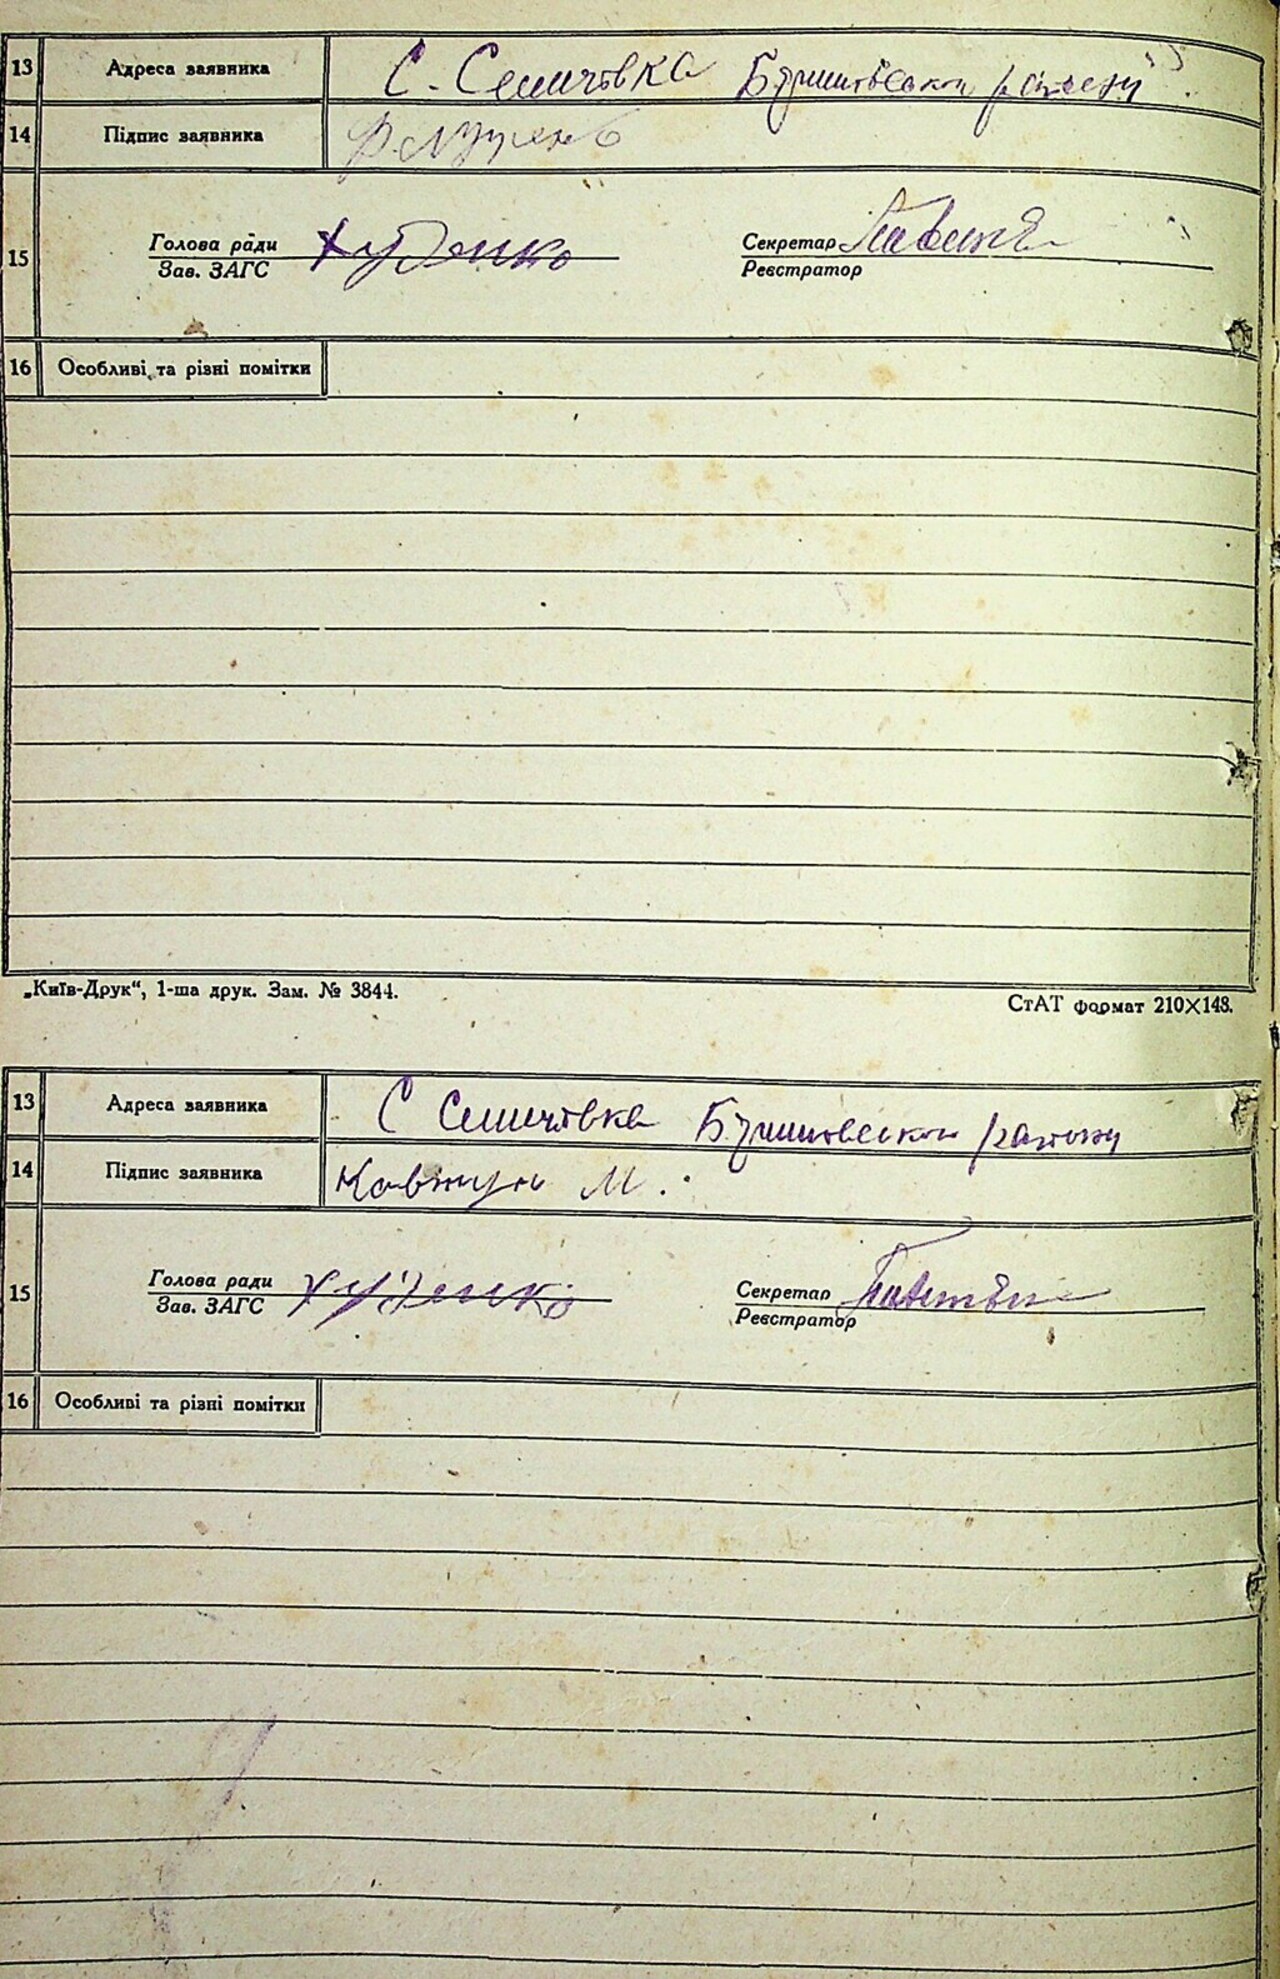 13 Адреса заявника С. Семичовка Буринського району
14 Підпис заявника
15 Голова ради Худенко Секретар
Зав. ЗАГС Реєстратор
16 Особливі та різні помітки
„Київ-Друк“, 1-ша друк. Зам. № 3844. СтАТ формат 210×148.
13 Адреса заявника С Семичовка району
14 Підпис заявника Ковтун М.
15 Голова ради Худенко Секретар
Зав. ЗАГС Реєстратор
16 Особливі та різні помітки